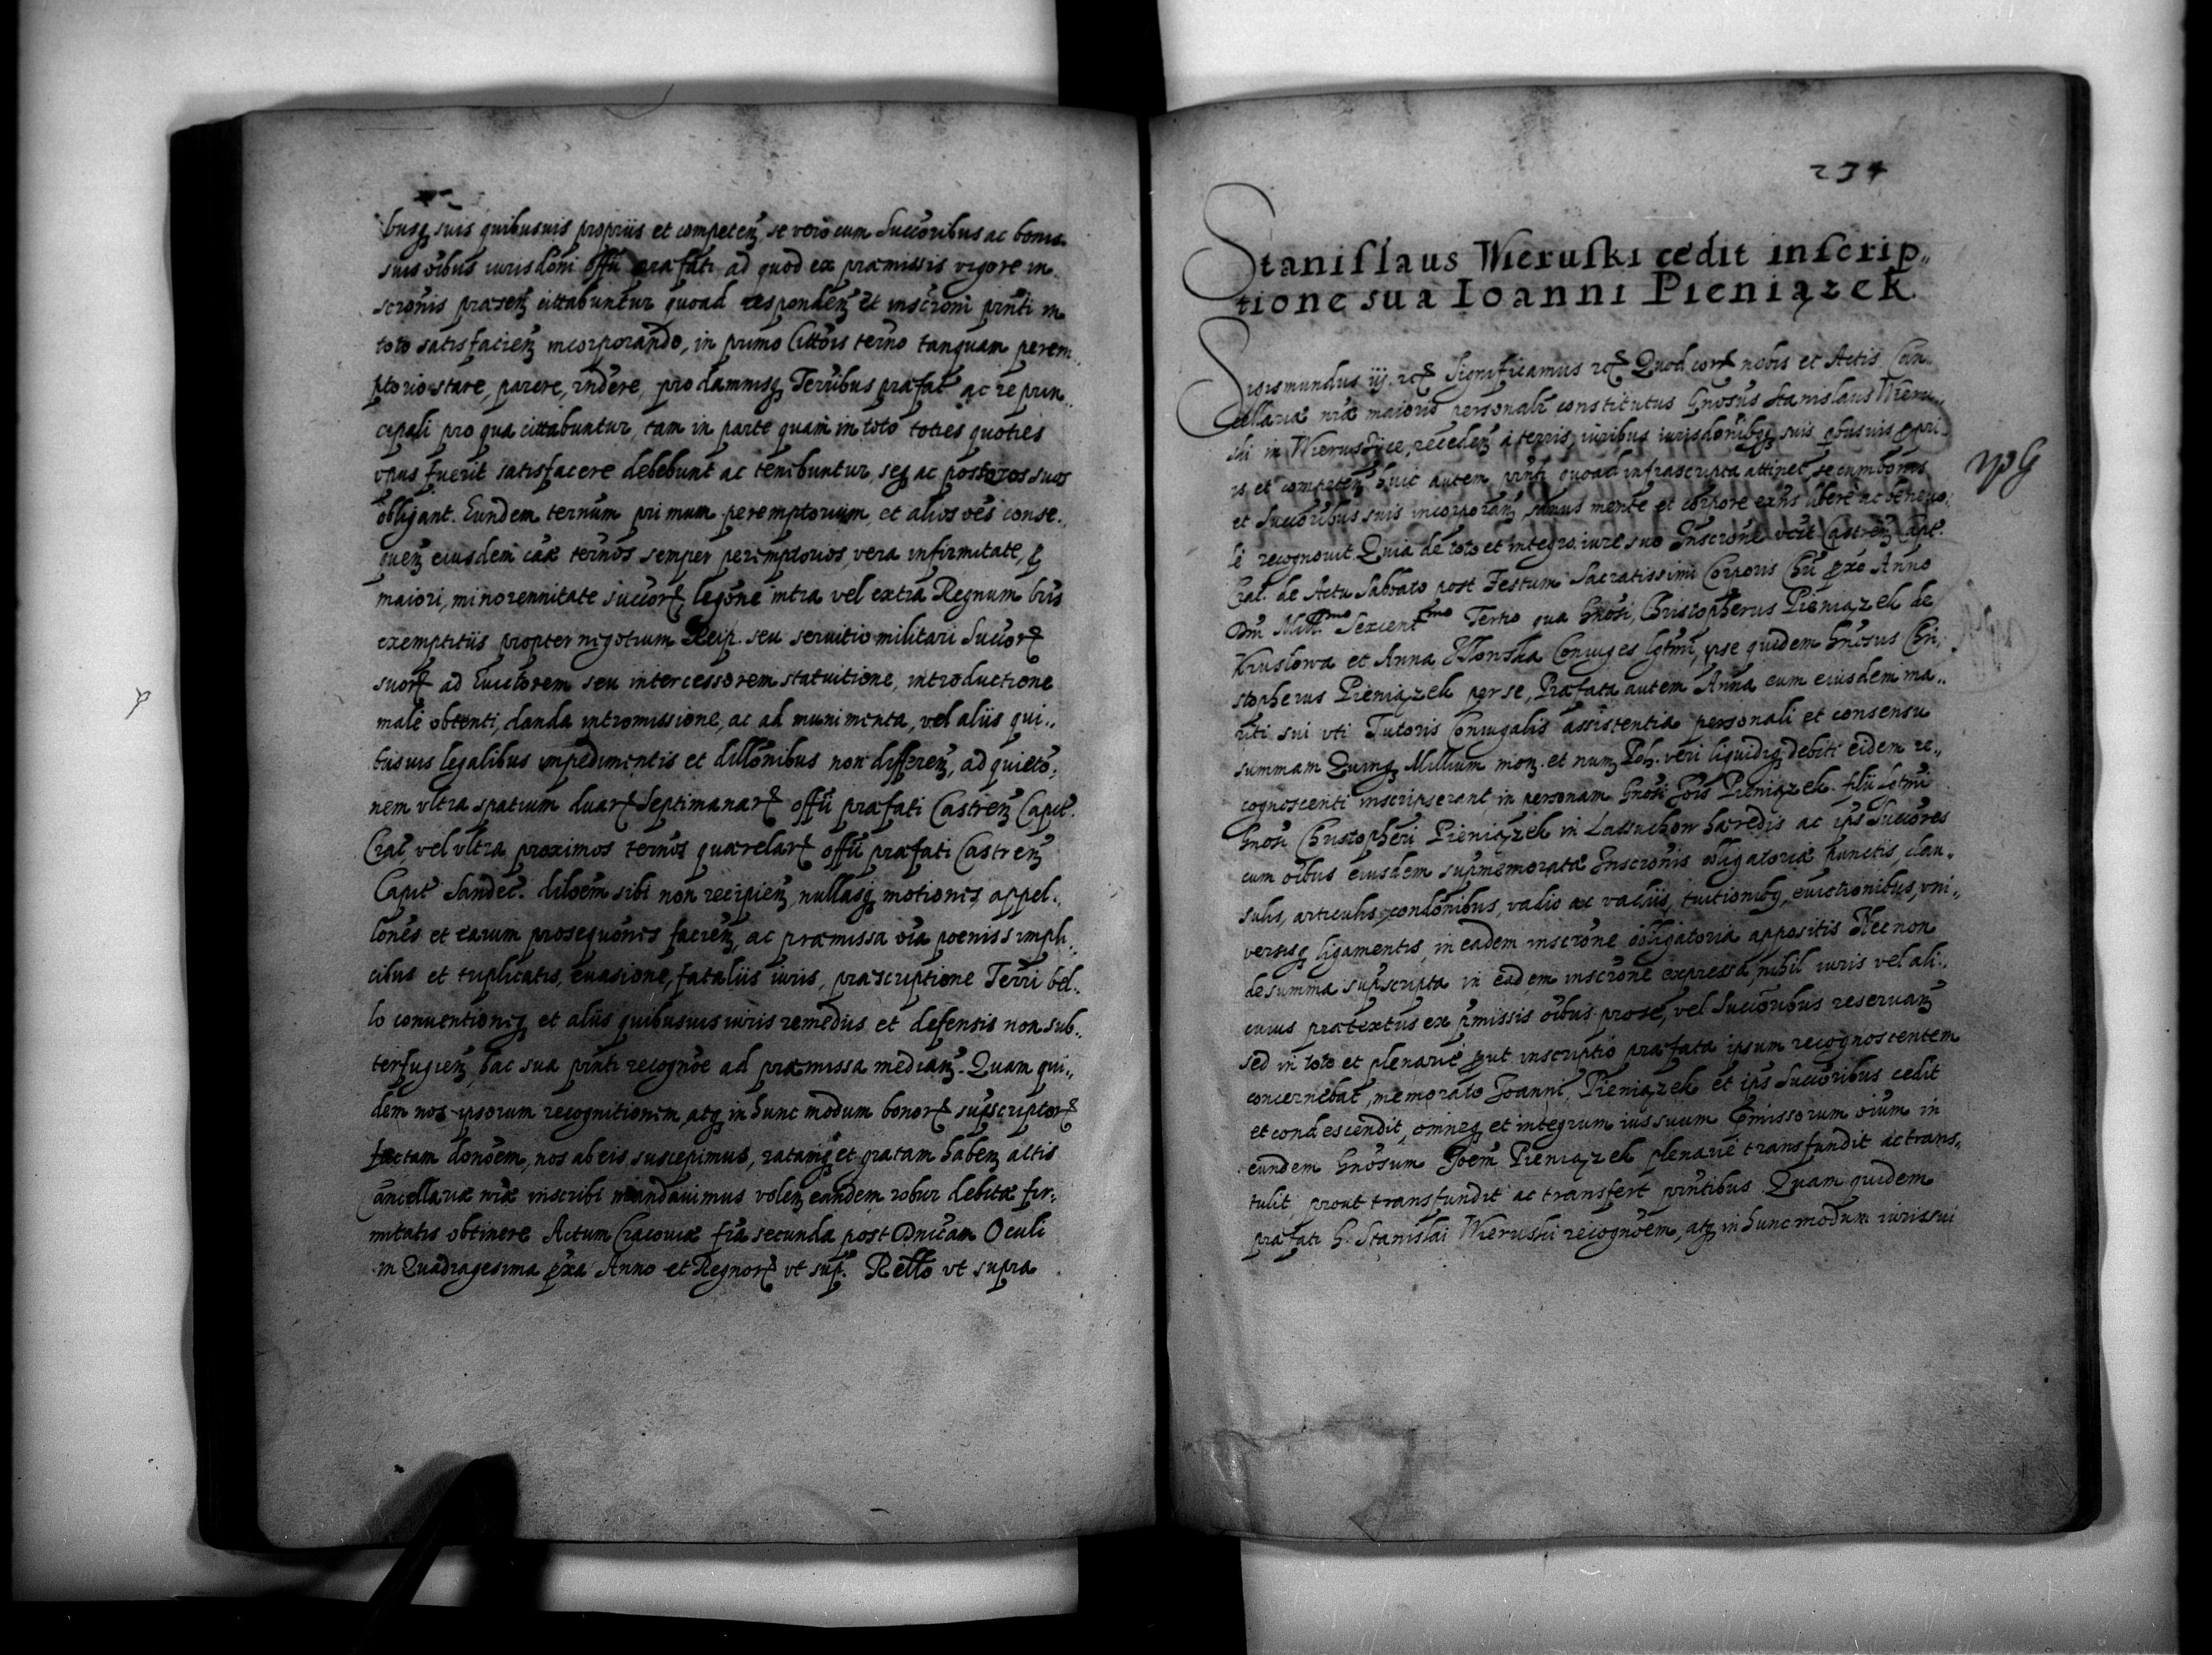 busq suis quibusuis proprijs et competen, se vero cum Succoribus ac bonis
suis oibus iurisdoni offii præfati, ad quod ex præmissis vigore in
scronis præsen cittabuntur quoad responden et inscroni pnti in
toto satisfacien incorporando, in primo Cittois terno tanquam perem„
ptorio stare, parere, rndere, pro damnisq Terribus præfat ac re prin„
cipali pro qua cittabuntur, tam in parte quam in toto toties quoties
opus fuerit satisfacere debebunt ac tenebuntur, seq ac posteros suos
obligant. Eundem ternum primum peremptorium, et alios oes conse„
quen eiusdem cax ternos semper peremptorios, vera infirmitate,
maiori, minorennitate succor, legone intra vel extra Regnum bris
exemptitijs propter negotium Reip. seu seruitio militari Succor
suor ad Euictorem seu intercessorem statuitione, introductione
male obtenti, danda intromissione, ac ad munimenta, vel alijs qui„
busuis legalibus impedimentis et dillonibus non differen, ad quieto„
nem vltra spatium duar Septimanar offii præfati Castren Capit.
Crac, vel vltra proximos ternos quærelar offii præfati Castren
Capit Sandec. diloem sibi non recipien, nullasq motiones, appel„
lones et earum prosequones facien, ac præmissa oia poenis simpli„
cibus et triplicatis, euasione, fatalijs iuris, præscriptione Terri bel„
lo conuentioneq et alijs quibusuis iuris remedijs et defensis non sub„
terfugien, hac sua pnti recognoe ad præmissa median. Quam qui„
dem nos ipsorum recognitionem, atq in hunc modum bonor supscriptor
factam donoem, nos ab eis suscepimus, ratamq et gratam haben actis
Cancellariæ nræ inscribi mandauimus volen eandem robur debitæ fir„
mitatis obtinere Actum Cracouiæ fria secunda post Dnicam Oculi
in Quadragesima pxa Anno et Regnor vt sup. Rello vt supra
234
Stanislaus Wieruski cedit inscrip„
tione sua Ioanni Pieniązek
Sigismundus iij. rc Significamus rc Quod cor nobis et Actis Can„
cellariæ nræ maioris personalr constitutus Gnosus Stanislaus Wieru„
ski in Wieruszice, receden a terris, iuribus iurisdonibq suis qbusuis ppri„
is, et competen huic autem pnti quoad infrascripta attinet se cum bonis
et Succoribus suis incorporan, sanus mente et corpore exns libere ac beneuo„
le recognouit Quia de toto et integro iure suo Inscrone vcit Castren Capt.
Cral. de Actu Sabbato post Festum Sacratissimi Corporis Chri pxo Anno
Dni Mill.mo Sexcentmo Tertio qua Gnosi, Christopherus Pieniązek de
Kruslowa et Anna Coniuges lgtmi, ipse quidem Gnosus Chri„
stopherus Pieniązek per se, Præfata autem Anna cum eiusdem ma„
riti sui vti Tutoris Coniugalis assistentia personali et consensu
summam Quinq Millium mon. et num Pol. veri liquidiq debiti eidem re„
cognoscenti inscripserant in personam Gnosi Jois Pieniązek filij lgtmi
Gnosi Christopheri Pieniązek in hæredis ac ips Succores
cum oibus eiusdem supmemoratæ Inscronis obligatoriæ punctis, clau„
sulis, articulis, condonibus, vadio ac vadijs, tuitionibq, euictionibus, vni„
versisq ligamentis, in eadem inscrone obligatoria appositis Necnon
de summa supscripta in eadem inscrone expressa, nihil iuris vel ali„
cuius prætextus ex pmissis oibus pro se, vel Succoribus reseruan
sed in toto et plenarie put inscriptio præfata ipsum recognoscentem
concernebat, memorato Joanni Pieniązek et ips Succoribus cedit
et condescendit, omneq et integrum ius suum pmissorum oium in
eundem Gnosum Joem Pieniązek plenarie transfundit ac trans„
tulit, prout transfundit ac transfert pntibus Quam quidem
præfati G. Stanislai Wieruski recognoem, atq in hunc modum iuris sui